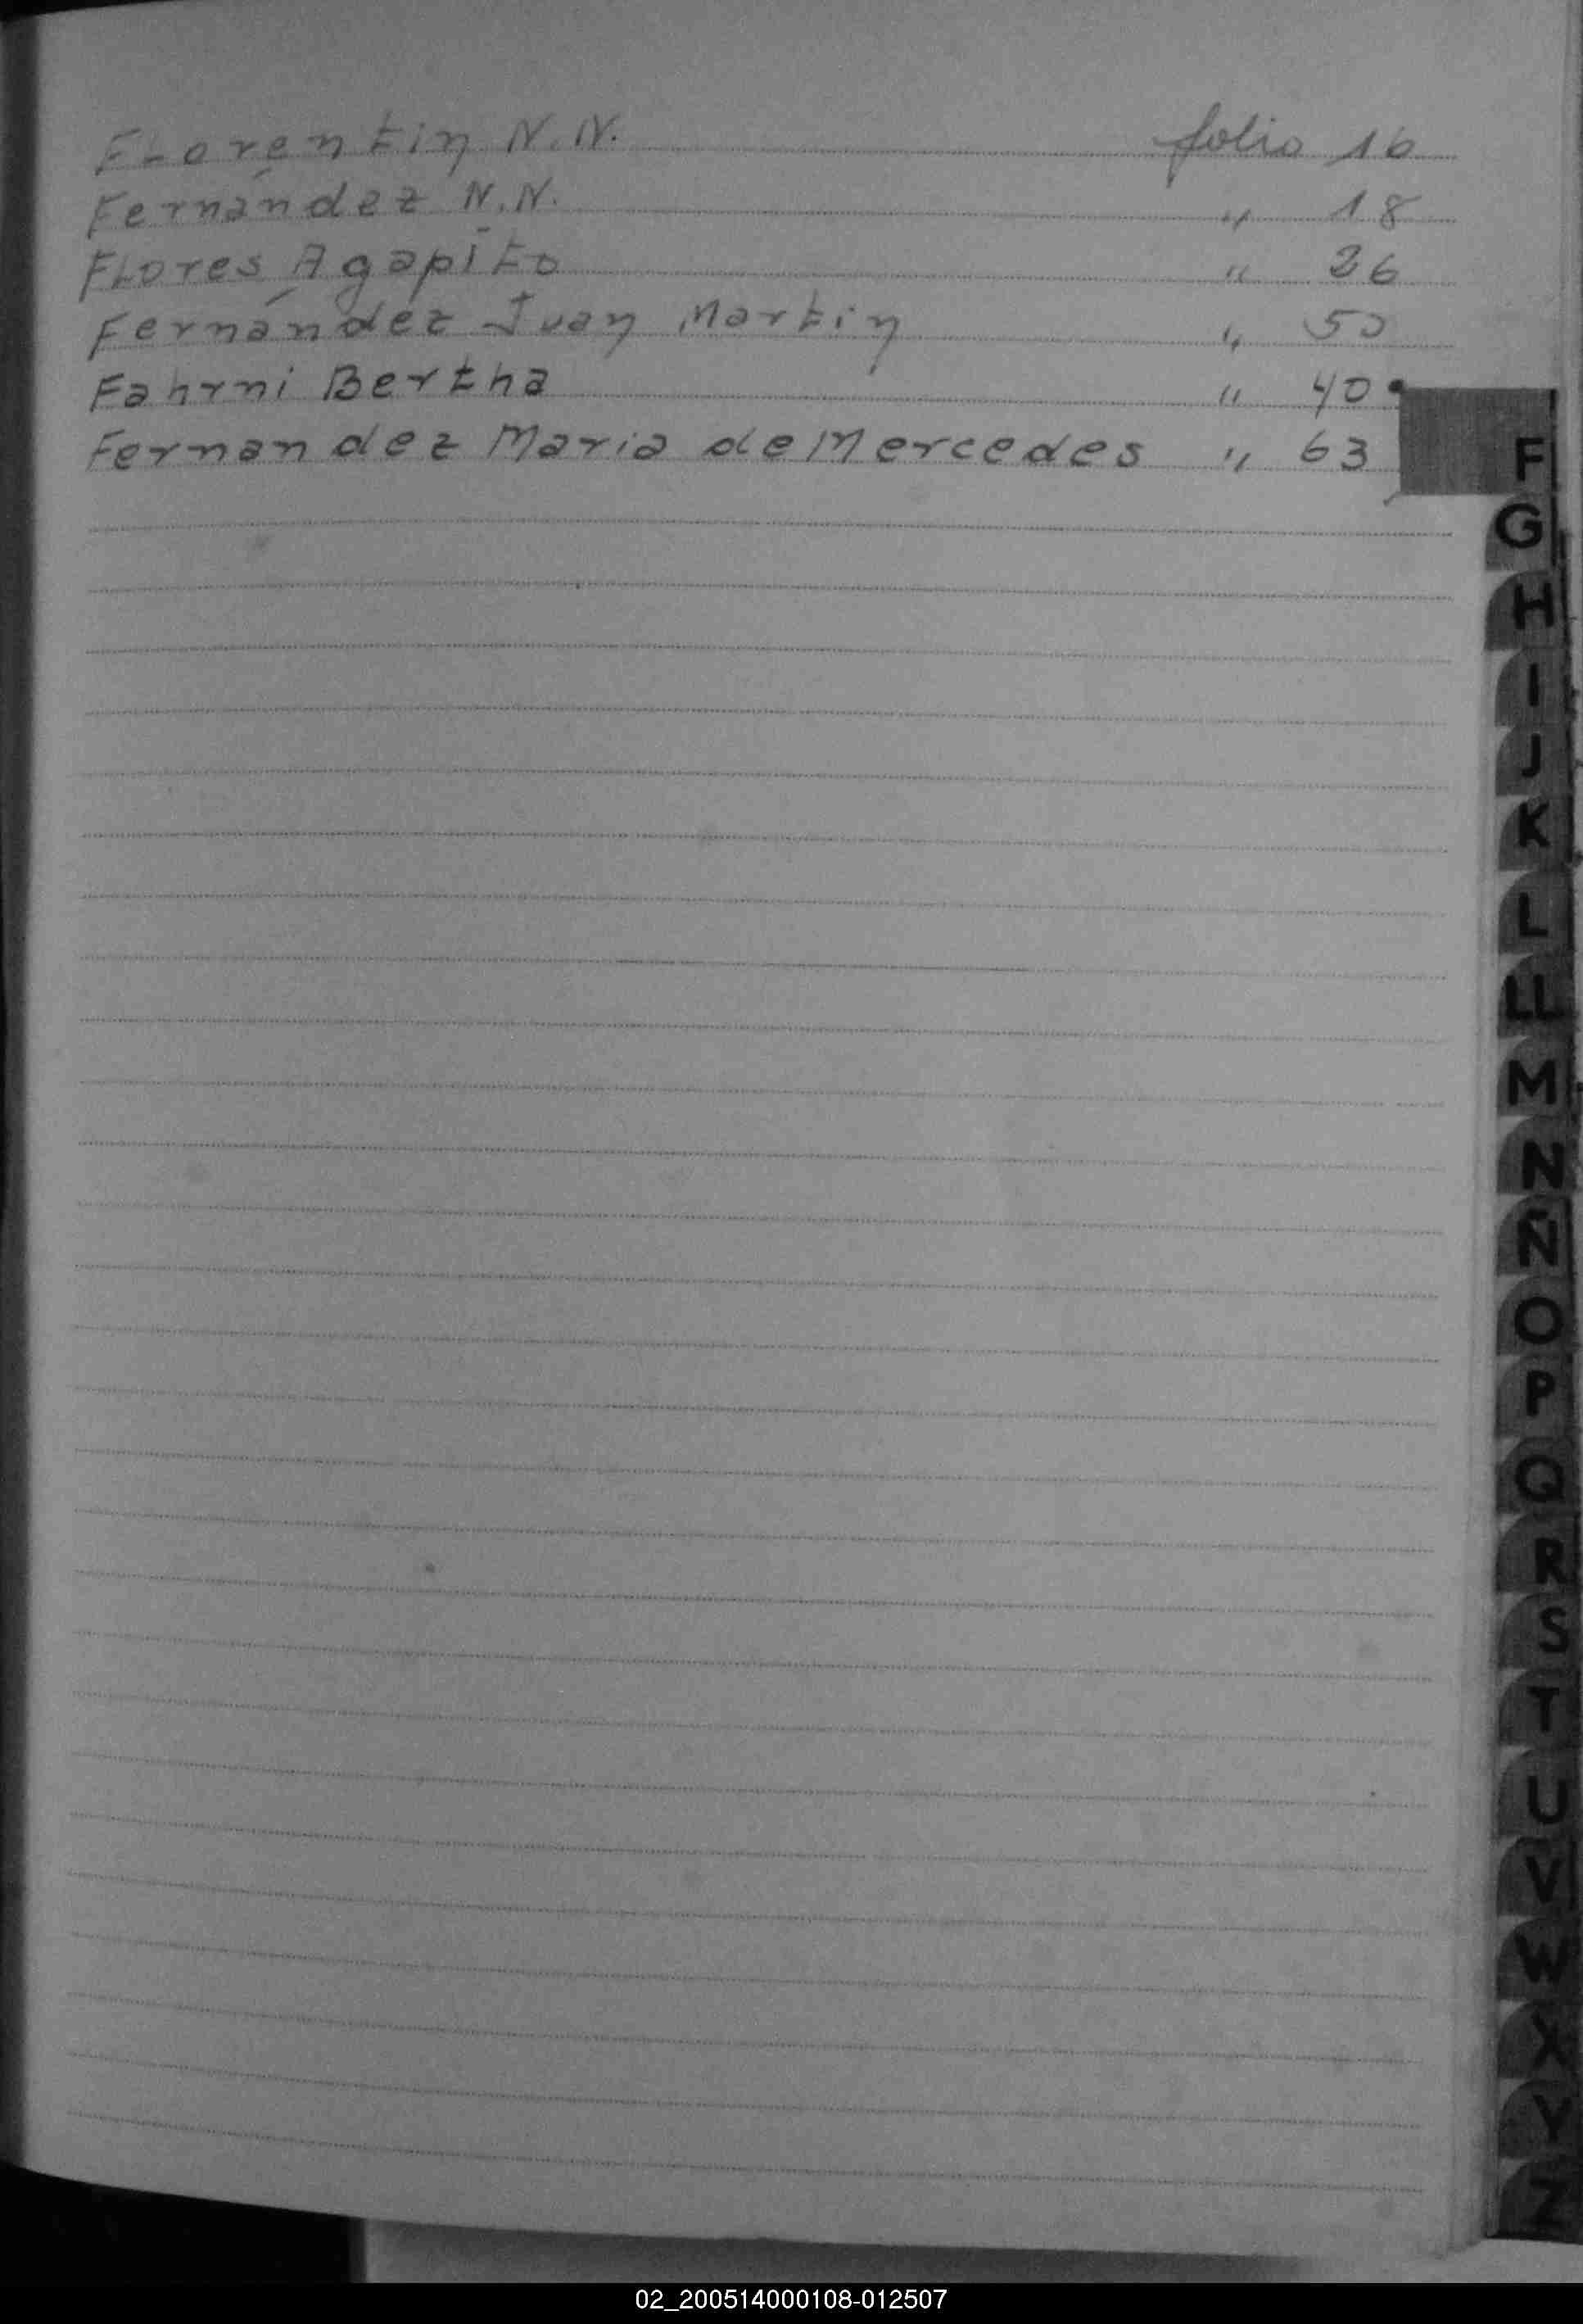 Florentin N.N. folio 16
Fernández N.N. " 18
Flores Agapito " 26
Fernández Juan Martin " 50
Fahrni Bertha " 40
Fernandez Maria de Mercedes " 63
F
G
H
I
J
K
L
LL
M
N
Ñ
O
P
Q
R
S
T
U
V
W
X
Y
Z
02_200514000108-012507